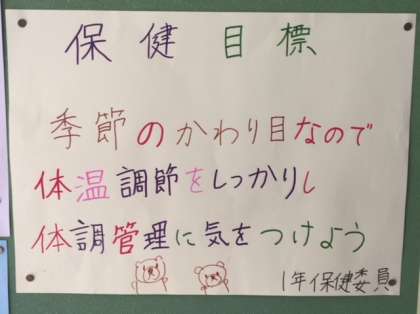 保健目標
季節のかわり目なので
体温調節をしっかりし
体調管理に気をつけよう
1年保健委員